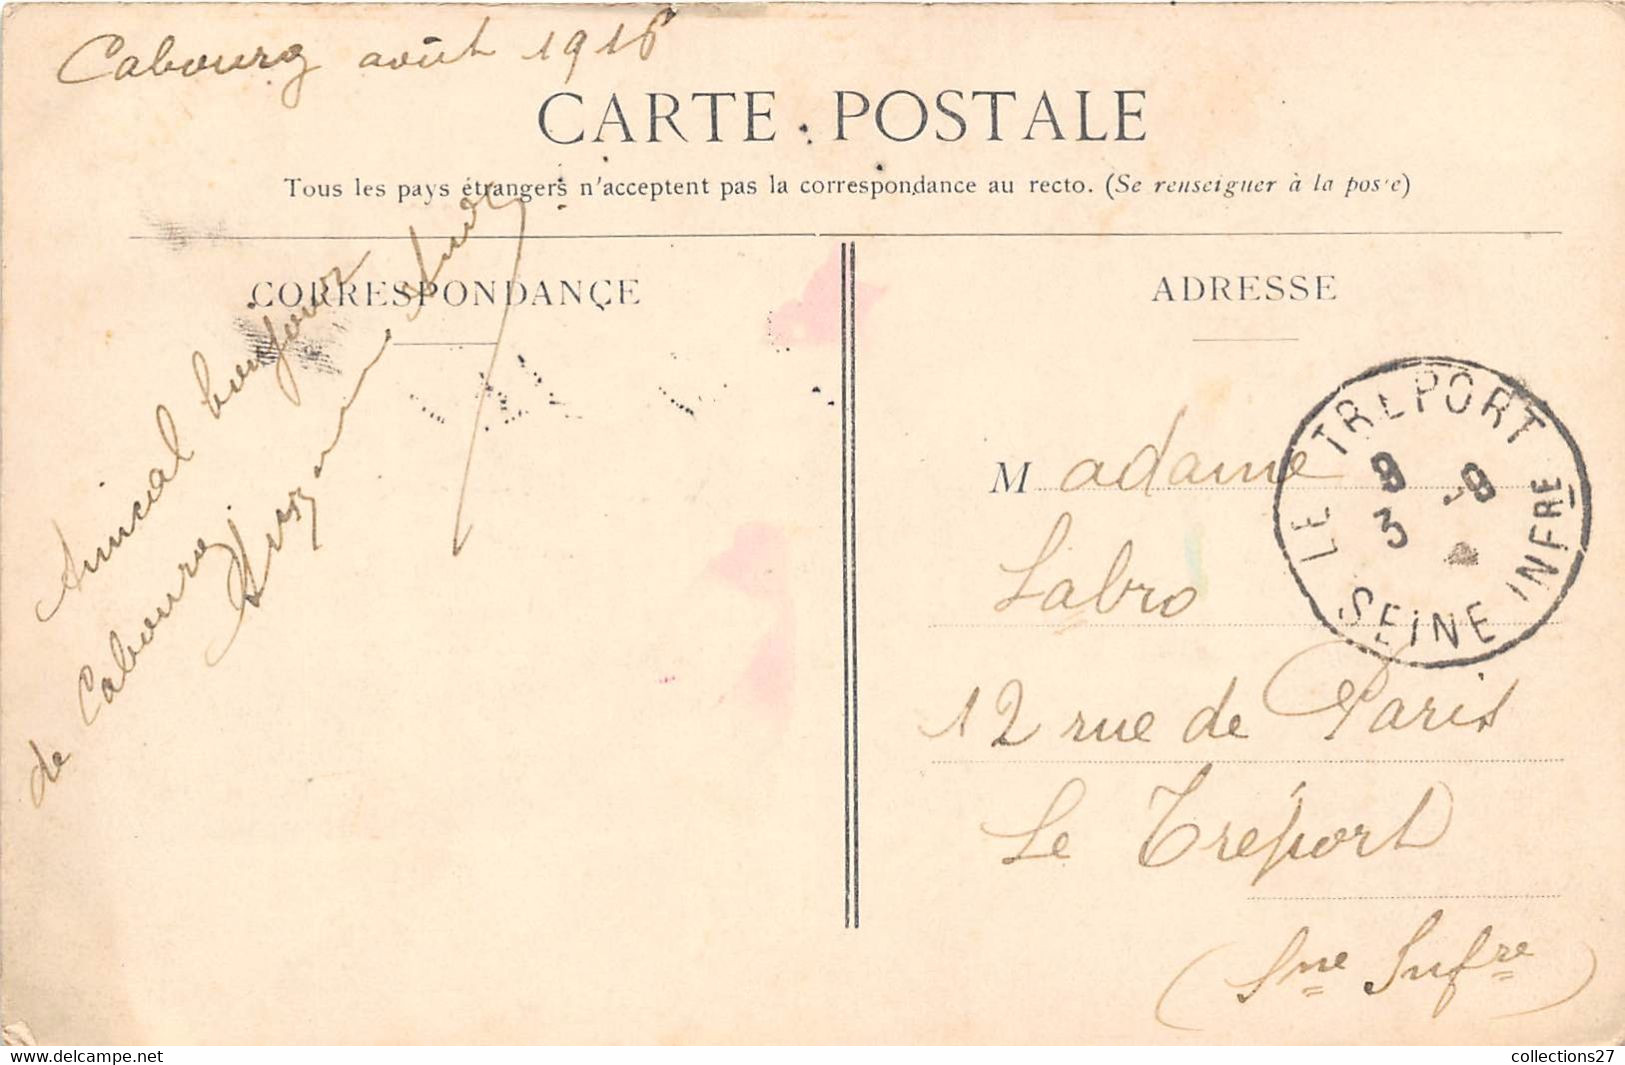 Cabourg août 1916
CARTE POSTALE
Tous les pays étrangers n'acceptent pas la correspondance au recto. (Se renseigner à la poste)
CORRESPONDANCE
Amical bonjour
de Cabourg
Suzanne
ADRESSE
Madame
Labro
12 rue de Paris
Le Tréport
(Sne Infre)
LE TREPORT
8 -8
3
SEINE INFRE
collections27